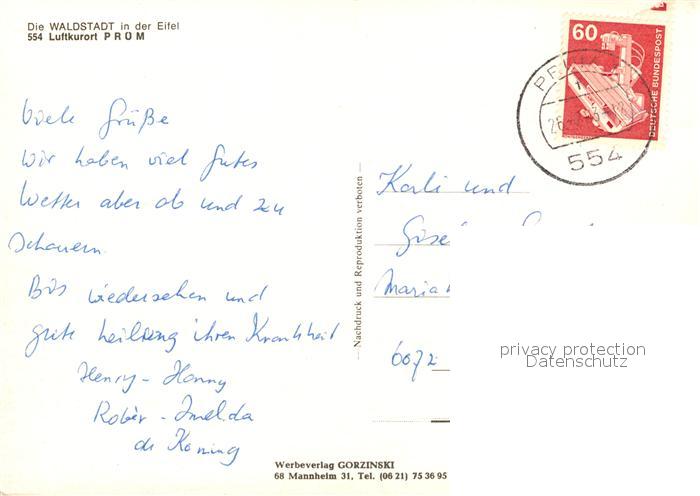 Die WALDSTADT in der Eifel
554 Luftkurort PRÜM
60
DEUTSCHE BUNDESPOST
PRÜM
1
554
Viele Grüße
Wir haben viel gutes
Wetter aber ab und zu
schauern.
Bis wiedersehen und
gute heilung ihren Krankheit
Henry - Hanny
Robèr - Imelda
de Koning
Nachdruck und Reproduktion verboten
Karli und
Maria
6072
privacy protection
Datenschutz
Werbeverlag GORZINSKI
68 Mannheim 31, Tel. (06 21) 75 36 95